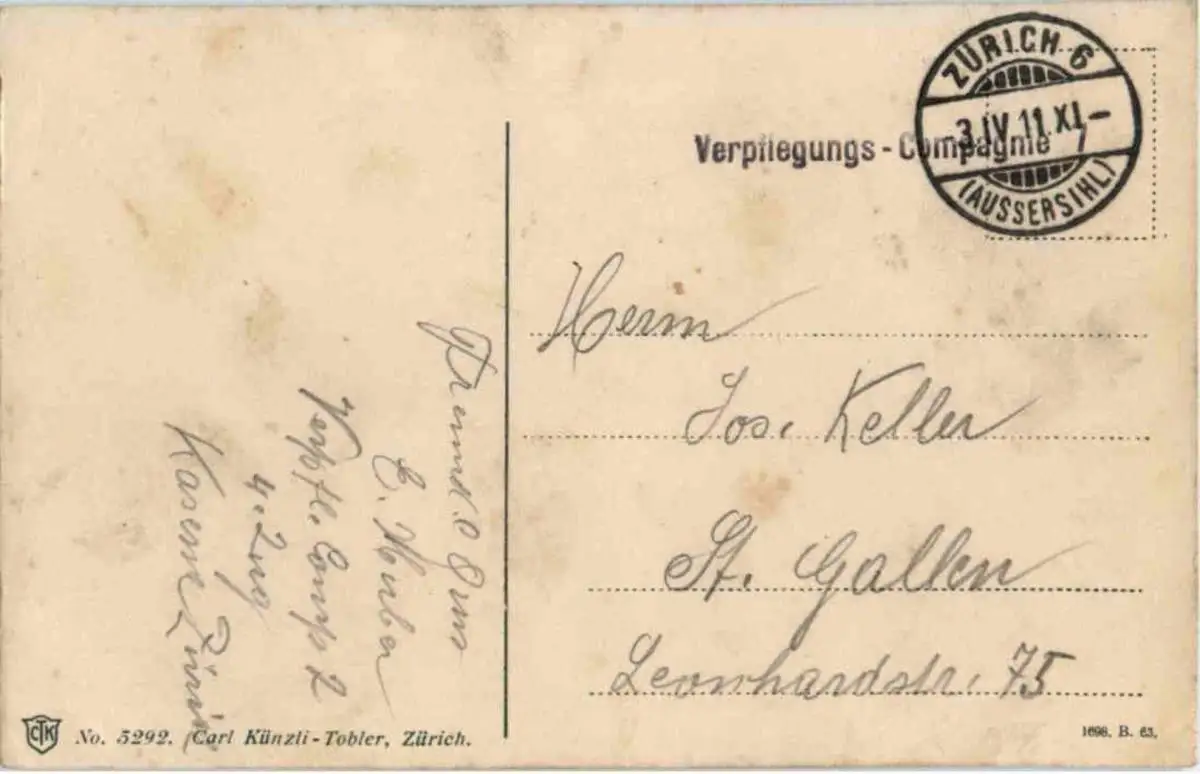 ZÜRICH 6
3.IV.11.XI–
(AUSSERSIHL)
Verpflegungs-Compagnie
Herrn
Jos. Keller
St. Gallen
Leonhardstr. 75
Freundl. Gruss
E. Huber
Verpfl. Comp 2
4. Zug
Kaserne Zürich
CTK
No. 5292. Carl Künzli-Tobler, Zürich.
1698. B. 63.